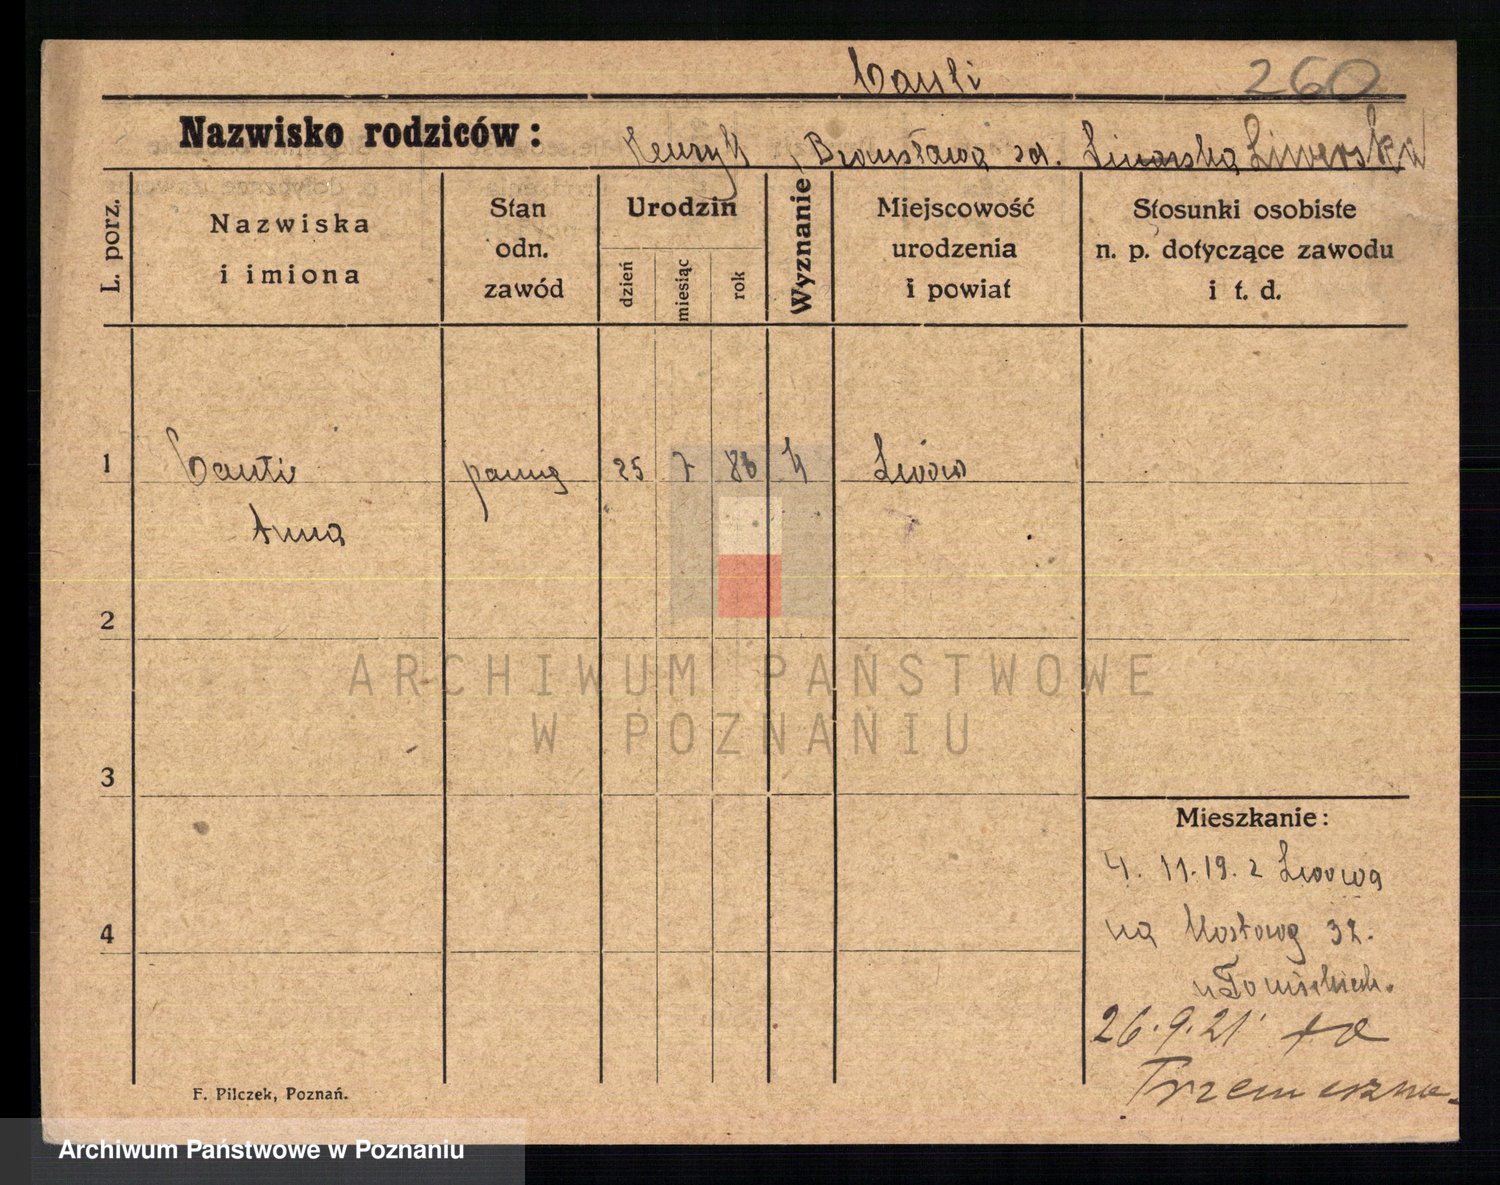 Cauli 260
Nazwisko rodziców: Henryk, Bronisława zd. Liwerska
L. porz.
Nazwiska
i imiona
Stan
odn.
zawód
Urodzin
dzień
miesiąc
rok
Wyznanie
Miejscowość
urodzenia
i powiat
Stosunki osobiste
n. p. dotyczące zawodu
i t. d.
1 Cauli panna 25 7 83 k Lwów
Anna
2
3
4
Mieszkanie:
4. 11. 19. z Lwowa
na Mostową 32.
26.9.21
Trzemeszna
F. Pilczek, Poznań.
ARCHIWUM PAŃSTWOWE
W POZNANIU
Archiwum Państwowe w Poznaniu